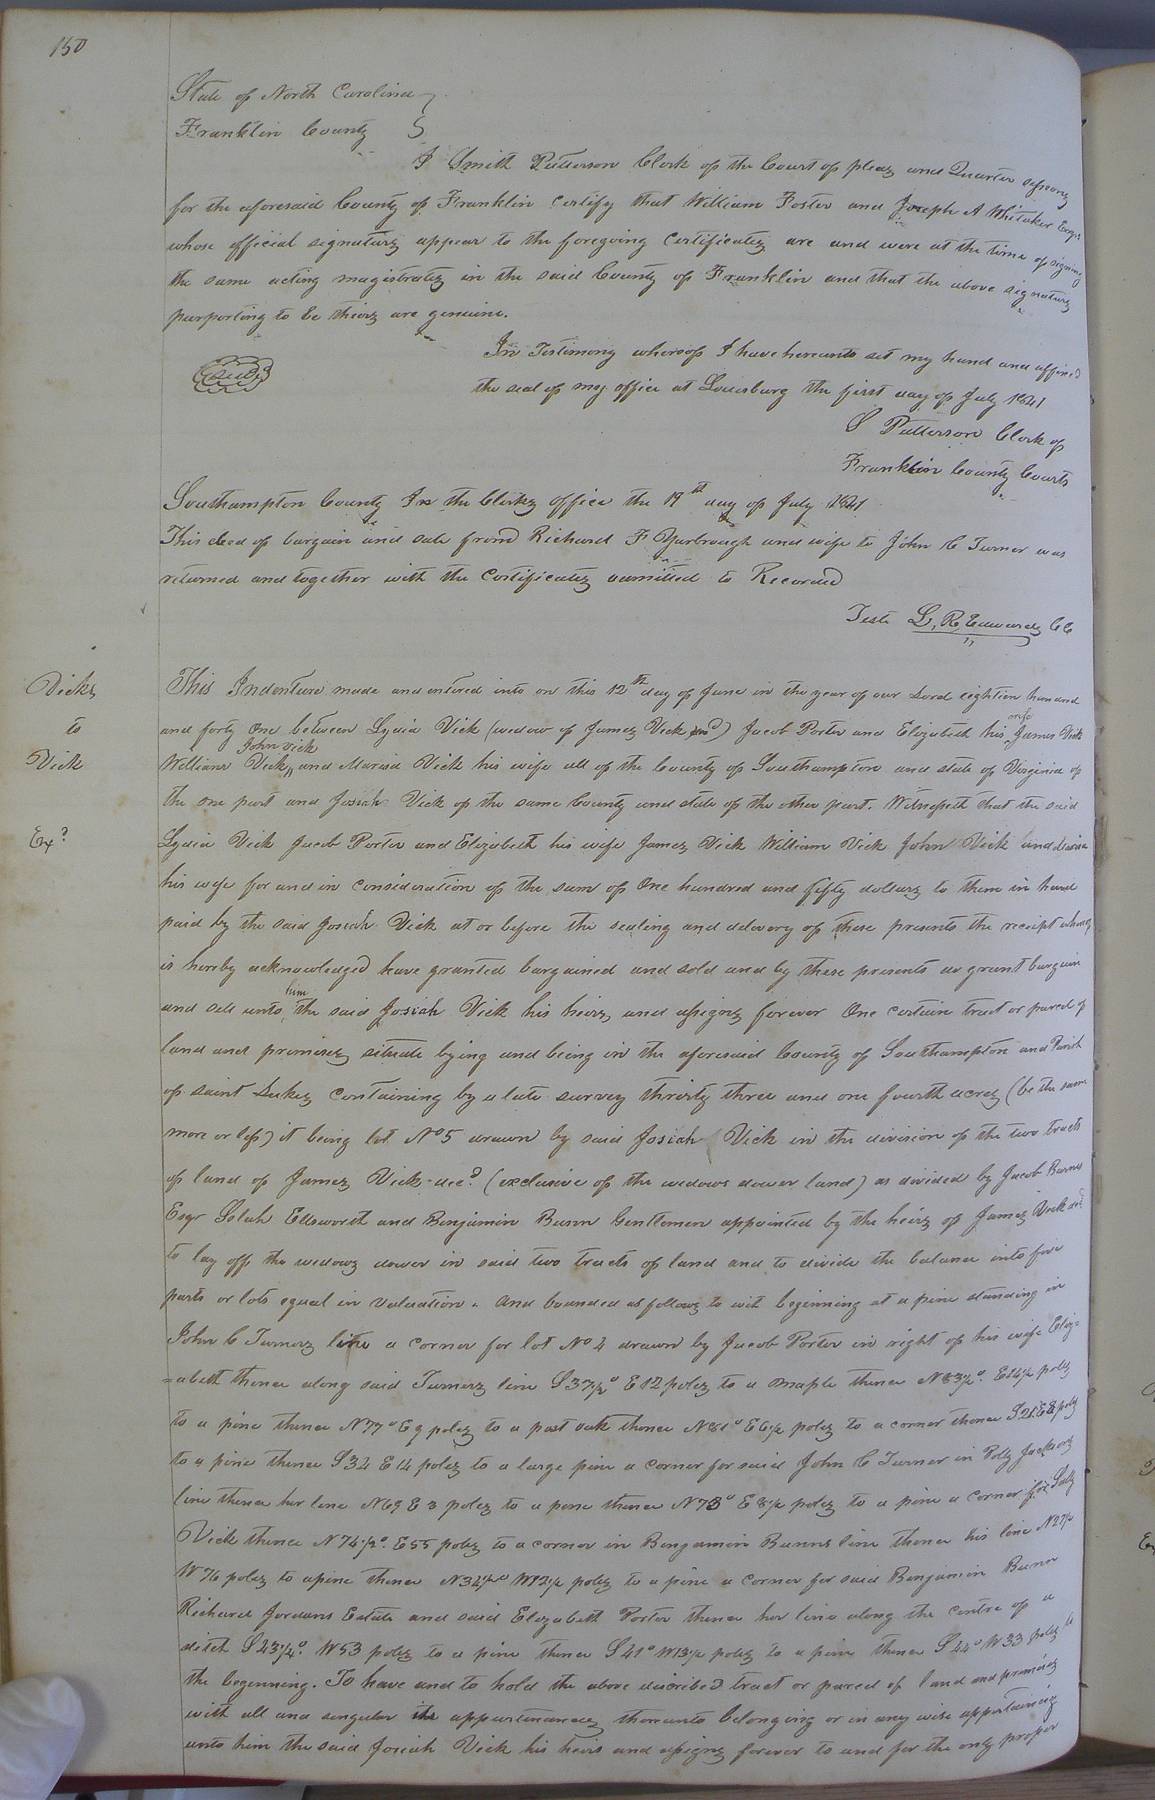 150
State of North Carolina
Franklin County
I Smith Patterson Clerk of the Court of pleas and Quarter sessions
for the aforesaid County of Franklin certify that William Foster and Joseph A Whitaker Esqrs
whose official signatures appear to the foregoing certificates are and were at the time of signing
the same acting magistrates in the said County of Franklin and that the above signatures
purporting to be theirs are genuine.
In Testimony whereof I have hereunto set my hand and affixed
the seal of my office at Louisburg the first day of July 1841
Seal
S Patterson Clerk of
Franklin County Courts
Southampton County In the Clerks office the 19th day of July 1841
This deed of bargain and sale from Richard F Yarbrough and wife to John C Turner was
returned and together with the certificates admitted to Record
Teste L. R. Edwards CC
Vicks
to
Vick
Exd
This Indenture made and entered into on this 12th day of June in the year of our Lord eighteen hundred
and forty One between Lydia Vick (widow of James Vick decd) Jacob Porter and Elizabeth his wife James Vick
William Vick, John Vick and Marina Vick his wife all of the County of Southampton and state of Virginia of
the one part and Josiah Vick of the same County and state of the other part. Witnesseth that the said
Lydia Vick Jacob Porter and Elizabeth his wife James Vick William Vick John Vick and Marina
his wife for and in consideration of the sum of One hundred and fifty dollars to them in hand
paid by the said Josiah Vick at or before the sealing and delivery of these presents the receipt whereof
is hereby acknowledged have granted bargained and sold and by these presents do grant bargain
and sell unto him the said Josiah Vick his heirs and assigns forever One certain tract or parcel of
land and premises situate lying and being in the aforesaid County of Southampton and Parish
of saint Lukes containing by a late survey thirty three and one fourth acres (be the same
more or less) it being lot No 5 drawn by said Josiah Vick in the division of the two tracts
of land of James Vick decd (exclusive of the widows dower land) as divided by Jacob Barnes
Esqr Selah Ellsworth and Benjamin Bunn Gentlemen appointed by the heirs of James Vick decd
to lay off the widows dower in said two tracts of land and to divide the balance into five
parts or lots equal in valuation. And bounded as follows to wit beginning at a pine standing in
John C Turners line a corner for lot No 4 drawn by Jacob Porter in right of his wife Eliz=
=abeth thence along said Turners line S 37½° E 12 poles to a maple thence N 83½° E 14½ poles
to a pine thence N 77° E 9 poles to a post oak thence N 81° E 6½ poles to a corner thence S 21 E 8 poles
to a pine thence S 34 E 14 poles to a large pine a corner for said John C Turner in Polly Jacksons
line thence her line N 69 E 3 poles to a pine thence N 78° E 8½ poles to a pine a corner for Sally
Vick thence N 74½° E 55 poles to a corner in Benjamin Bunns line thence his line N 27½
W 76 poles to a pine thence N 34½° W 12½ poles to a pine a corner for said Benjamin Bunn
Richard Jordans Estate and said Elizabeth Porter thence her line along the centre of a
ditch S 43¼° W 53 poles to a pine thence S 41° W 13½ poles to a pine thence S 44° W 33 poles to
the beginning. To have and to hold the above discribed tract or parcel of land and premises
with all and singular the appurtenances thereunto belonging or in any wise appertaining
unto him the said Josiah Vick his heirs and assigns forever to and for the only proper